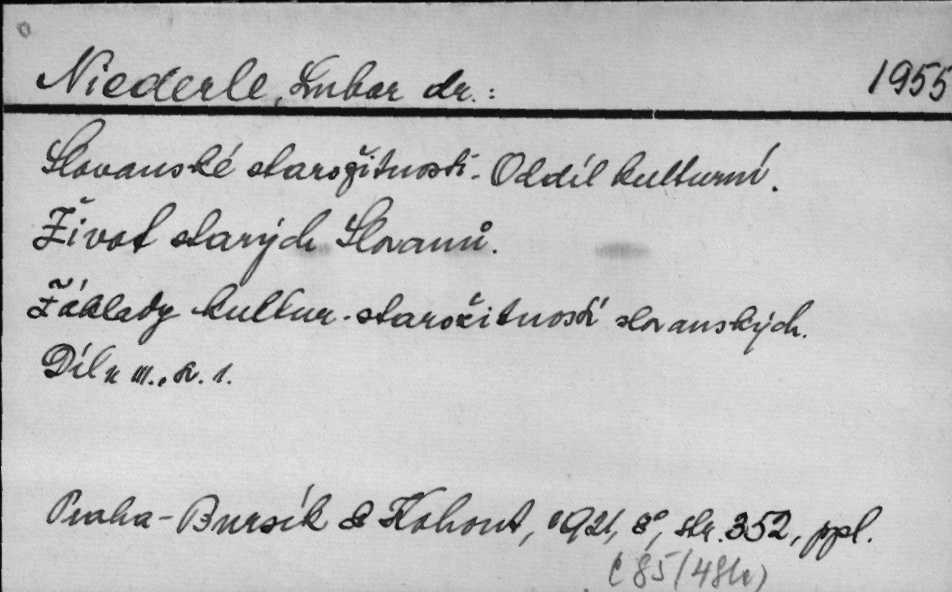 Niederle, Lubor dr.: 1955
Slovanské starožitnosti. Oddíl kulturní.
Život starých Slovanů.
Základy kultur. starožitností slovanských.
Dílu III., sv. 1.
Praha - Bursík & Kohout, 1921, 8°, str. 352, ppl.
C 85